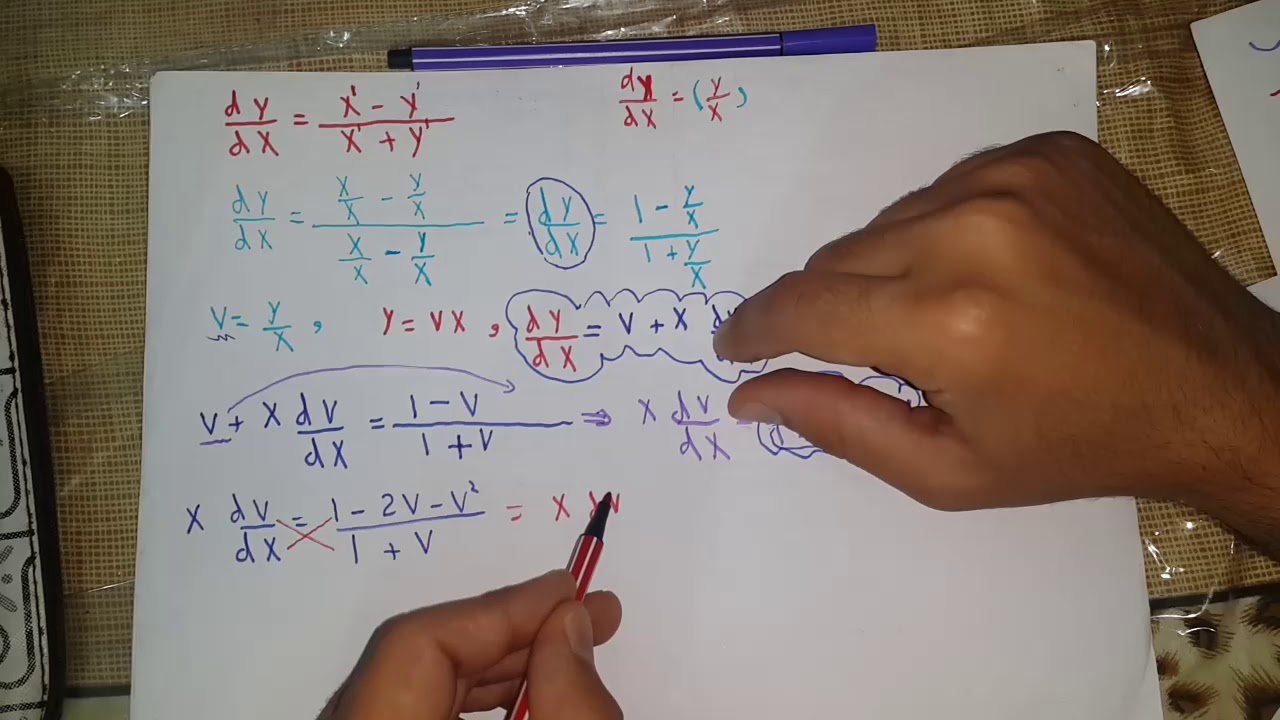 dy/dx = (x¹ - y¹)/(x¹ + y¹)    dy/dx = (y/x)
dy/dx = (x/x - y/x)/(x/x - y/x) = dy/dx = (1 - y/x)/(1 + y/x)
V = y/x , y = Vx , dy/dx = V + x
V + x dV/dx = (1 - V)/(1 + V) ⇒ x dV/dx =
x dV/dx = (1 - 2V - V²)/(1 + V) = x dV